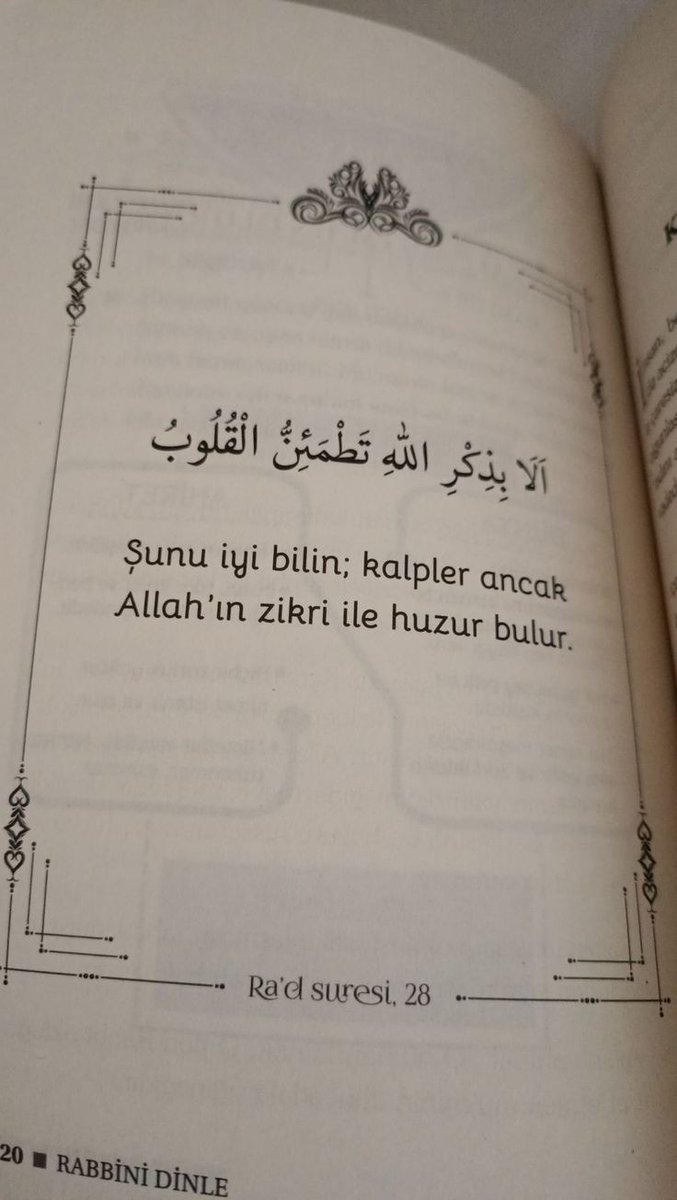 اَلَا بِذِكْرِ اللّٰهِ تَطْمَئِنُّ الْقُلُوبُ
Şunu iyi bilin; kalpler ancak
Allah'ın zikri ile huzur bulur.
Ra'd suresi, 28
20 ■ RABBİNİ DİNLE